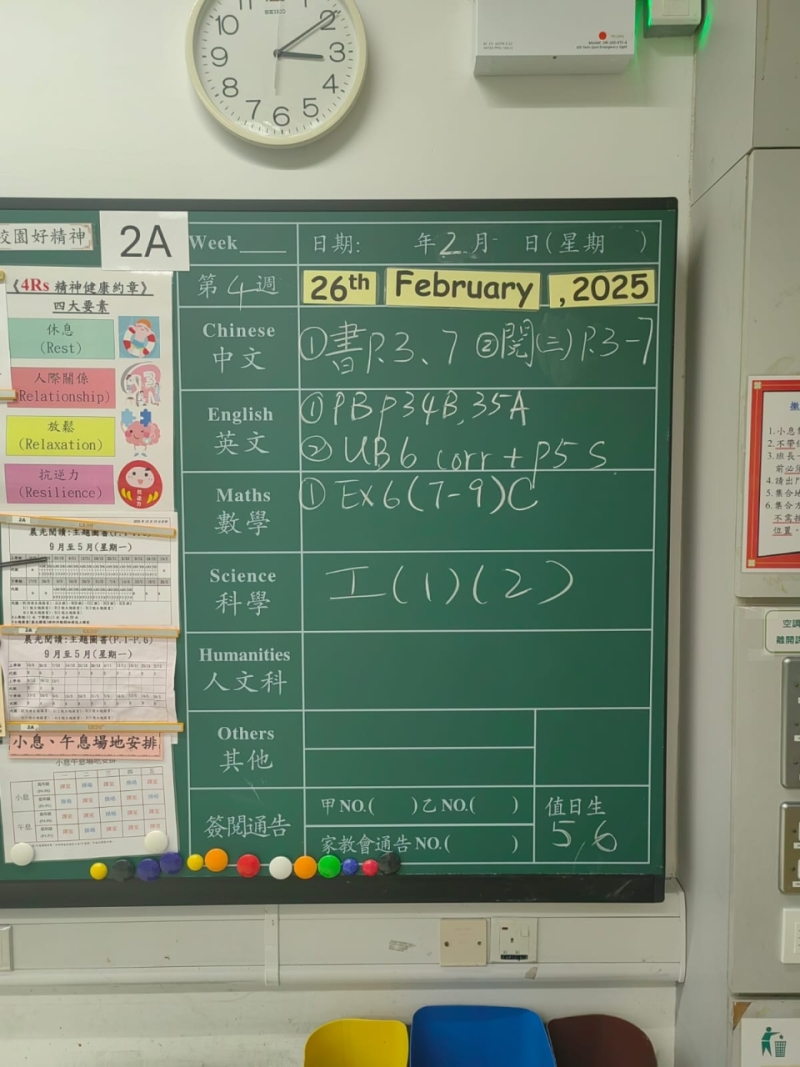 10 2
9 3
8 4
7 6 5
SEIKO
校園好精神
2A
Week____
日期: 年2月 日(星期 )
第4週
26th February , 2025
《4Rs 精神健康約章》
四大要素
休息
(Rest)
人際關係
(Relationship)
放鬆
(Relaxation)
抗逆力
(Resilience)
Chinese
中文
①書P.3、7 ②閱(三)P.3-7
English
英文
①PB p34B,35A
②UB6 corr + p5 S
Maths
數學
①Ex6(7-9)C
Science
科學
工(1)(2)
Humanities
人文科
Others
其他
簽閱通告
甲NO.( )乙NO.( )
家教會通告NO.( )
值日生
5,6
2A
9月至5月(星期一)
2A
晨光閱讀:主題圖書(P.1-P.6)
9月至5月(星期一)
2A
小息、午息場地安排
小息午息場地安排
一 二 三 四 五
小息
午息
1.小息
2.不帶
3.班長
前必
4.請出
5.集合
6.集合
不需
位置
空調
離開